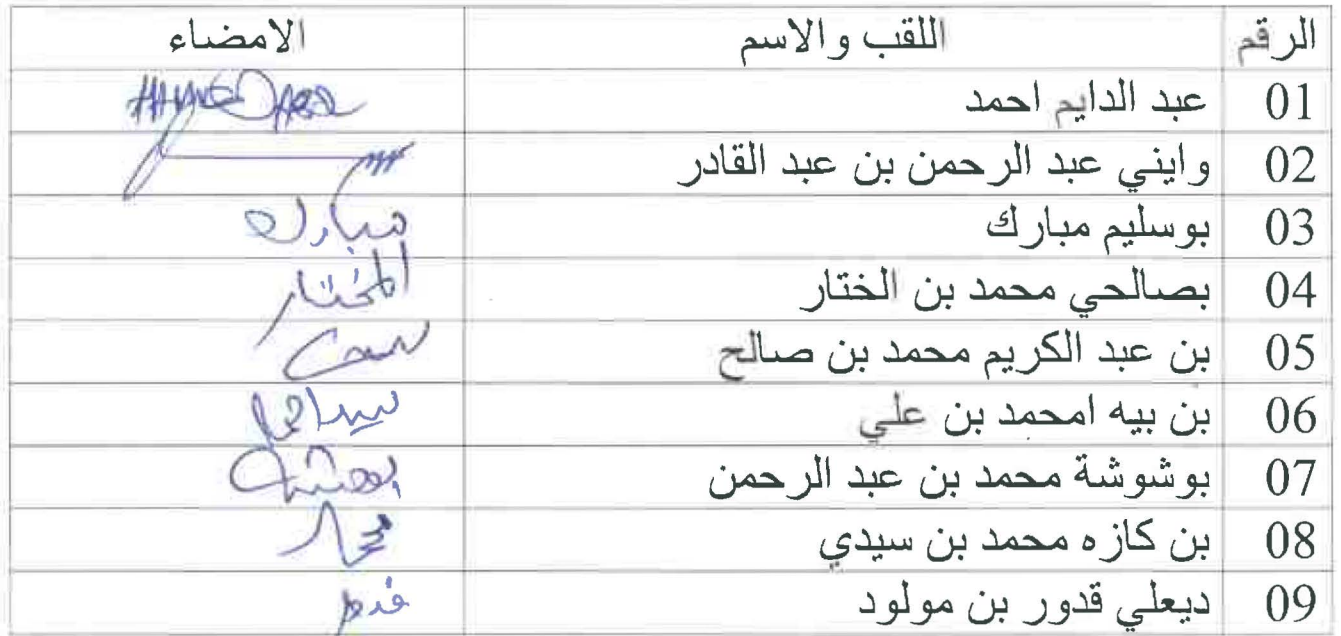 الرقم اللقب والاسم الامضاء
01 عبد الدايم احمد
02 وايني عبد الرحمن بن عبد القادر
03 بوسليم مبارك مبارك
04 بصالحي محمد بن الختار المختار
05 بن عبد الكريم محمد بن صالح
06 بن بيه امحمد بن علي
07 بوشوشة محمد بن عبد الرحمن
08 بن كازه محمد بن سيدي
09 ديعلي قدور بن مولود